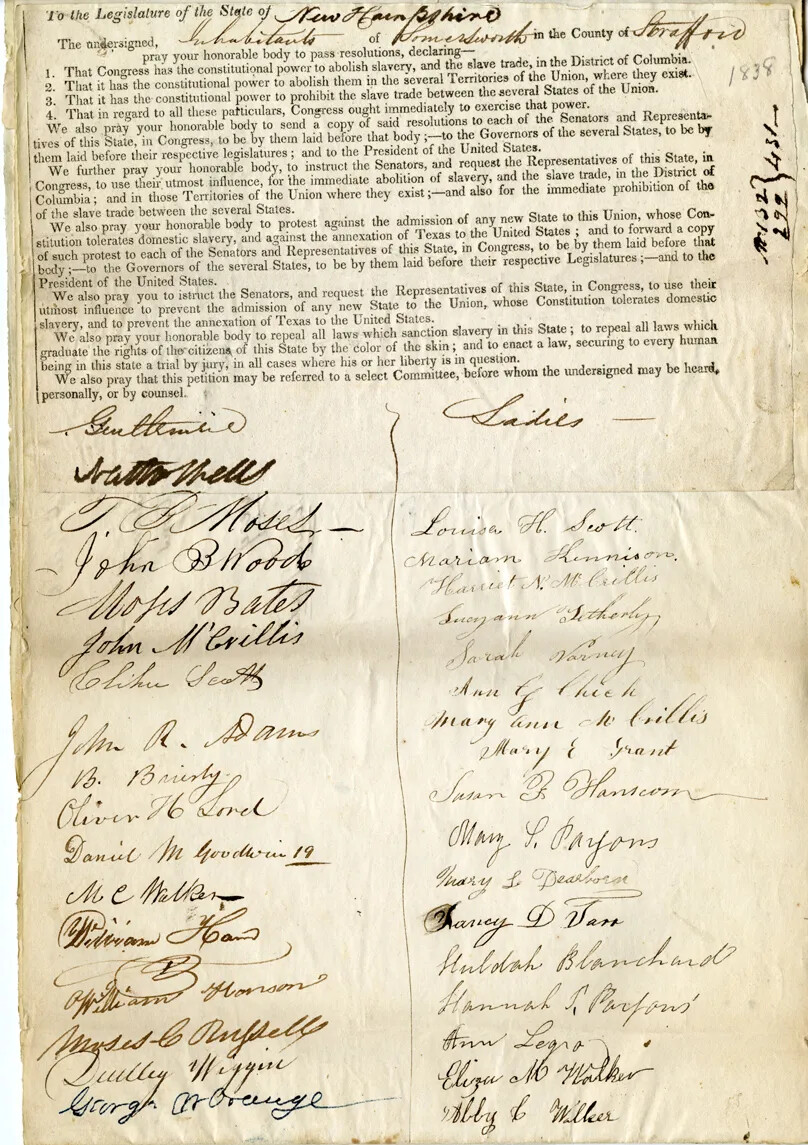 To the Legislature of the State of New Hampshire
The undersigned, Inhabitants of Somersworth in the County of Strafford
pray your honorable body to pass resolutions, declaring—
1. That Congress has the constitutional power to abolish slavery, and the slave trade, in the District of Columbia.
2. That it has the constitutional power to abolish them in the several Territories of the Union, where they exist.
3. That it has the constitutional power to prohibit the slave trade between the several States of the Union.
4. That in regard to all these particulars, Congress ought immediately to exercise that power.
We also pray your honorable body to send a copy of said resolutions to each of the Senators and Representa-
tives of this State, in Congress, to be by them laid before that body;—to the Governors of the several States, to be by
them laid before their respective legislatures; and to the President of the United States.
We further pray your honorable body, to instruct the Senators, and request the Representatives of this State, in
Congress, to use their utmost influence, for the immediate abolition of slavery, and the slave trade, in the District of
Columbia; and in those Territories of the Union where they exist;—and also for the immediate prohibition of the
of the slave trade between the several States.
We also pray your honorable body to protest against the admission of any new State to this Union, whose Con-
stitution tolerates domestic slavery, and against the annexation of Texas to the United States; and to forward a copy
of such protest to each of the Senators and Representatives of this State, in Congress, to be by them laid before that
body;—to the Governors of the several States, to be by them laid before their respective Legislatures;—and to the
President of the United States.
We also pray you to istruct the Senators, and request the Representatives of this State, in Congress, to use their
utmost influence to prevent the admission of any new State to the Union, whose Constitution tolerates domestic
slavery, and to prevent the annexation of Texas to the United States.
We also pray your honorable body to repeal all laws which sanction slavery in this State; to repeal all laws which
graduate the rights of the citizens of this State by the color of the skin; and to enact a law, securing to every human
being in this state a trial by jury, in all cases where his or her liberty is in question.
We also pray that this petition may be referred to a select Committee, before whom the undersigned may be heard,
personally, or by counsel.
1838
132
292
431
Gentlemen
Wells
Moses
John B Wood
Moses Bates
John McCrillis
Elihu Scott
John R. Adams
B. Brierly
Oliver H Lord
Daniel M Goodwin 19
M C Walker
William Hand
William Hanson
Moses C Russell
Dudley Wiggin
George Orange
Ladies
Louisa H. Scott.
Mariam Kennison.
Harriet N. McCrillis
Lucyann Tetherly
Sarah Varney
Ann G Chick
Mary Ann McCrillis
Mary E Grant
Susan F Hanscom
Mary S. Parsons
Mary L Dearborn
Nancy D Tarr
Huldah Blanchard
Hannah T. Parsons
Ann Legro
Eliza M Walker
Abby C Walker